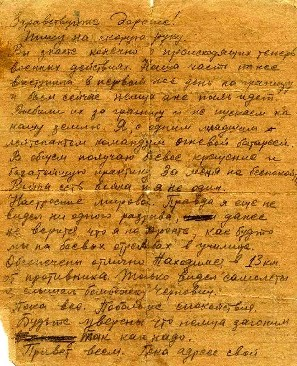 Здравствуйте Дорогие!
Пишу на скорую руку.
Вы знаете конечно о происходящих теперь
военных действиях. Наша часть тоже
выступила в первый же день на границу
Бьем сейчас немца аж пыль идет.
за границу и не пускаем на
нашу землю. Я с одним младшим
лейтенантом командуем огневой батареей.
В общем получаю боевое крещение и
богатейшую практику. За меня не беспокойтесь.
Война есть война и я не один.
Настроение мировое. Правда я еще не
видел ни одного разрыва, даже
не верится что я на фронте, как будто
мы на боевых стрельбах в училище.
Обеспечены отлично. Находимся в 13 км
от противника. Только видел самолеты
слышал
Пока все. Побольше спокойствия.
Будьте уверены что немца загоним
Так как надо.
Привет всем. Пока адрес свой